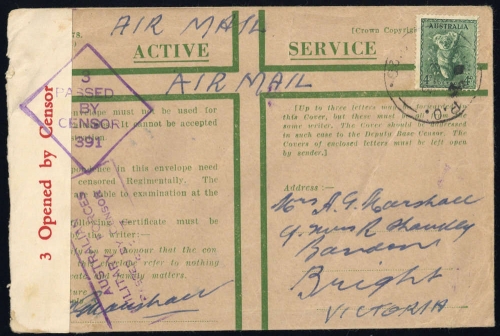 AIR MAIL
rs.
[Crown Copyright
ACTIVE SERVICE
AIR MAIL
AUSTRALIA
3
PASSED
BY
CENSOR
391
3 Opened by Censor
envelope must not be used for
It cannot be accepted
[Up to three letters
this Cover, but these must be
same writer. The Cover should be addressed
in such case to the Deputy Base Censor. The
Covers of enclosed letters must be left open
by sender.]
pondence in this envelope need
censored Regimentally. The
able to examination at the
following Certificate must be
the writer:—
on my honour that the con-
refer to nothing
ate and family matters.
AUSTRALIAN
MILITARY FORCES
Marshall
Address :—
Mrs A. G. Marshall
Bright
VICTORIA